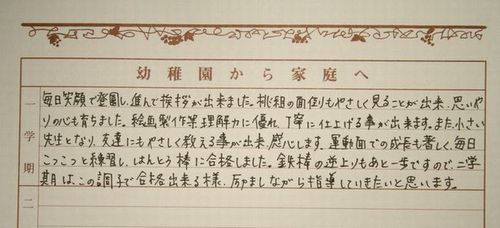 幼稚園から家庭へ
一学期
毎日笑顔で登園し、進んで挨拶が出来ました。桃組の面倒もやさしく見ることが出来、思いや
りの心も育ちました。絵画製作業理解力に優れ、丁寧に仕上げる事が出来ます。また小さい
先生となり、友達にもやさしく教える事が出来、感心します。運動面での成長も著しく、毎日
こつこつと練習し、はんとう棒に合格しました。鉄棒の逆上りもあと一歩ですので、二学
期は、この調子で合格出来る様、励ましながら指導していきたいと思います。
二